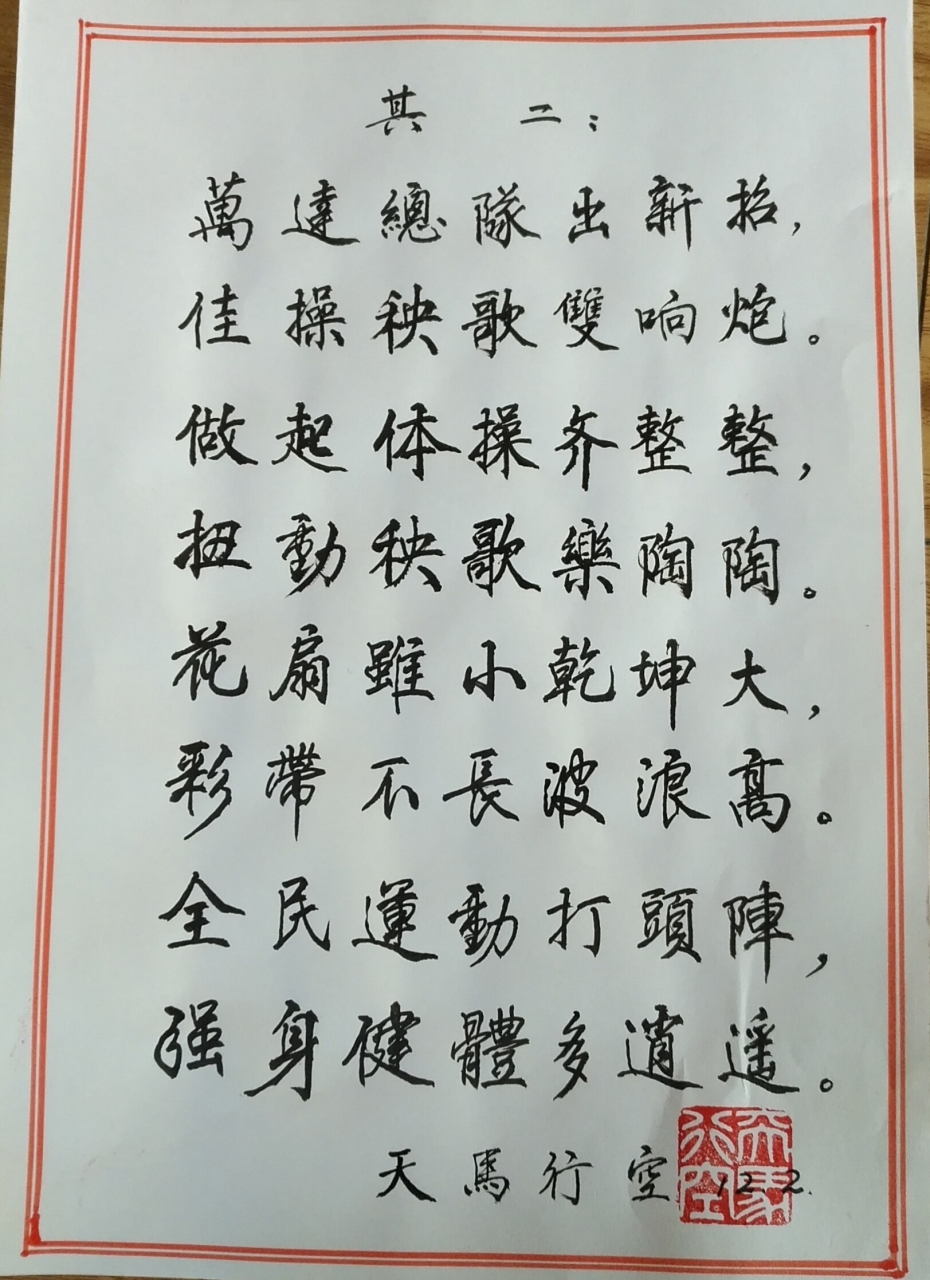 其 二：
萬達總隊出新招，
佳操秧歌雙响炮。
做起体操齐整整，
扭動秧歌樂陶陶。
花扇雖小乾坤大，
彩帶不長波浪高。
全民運動打頭陣，
强身健體多逍遥。
天馬行空 12.2.
天馬行空